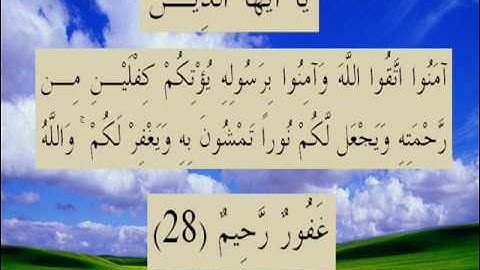 يَا أَيُّهَا الَّذِيــنَ
آمَنُوا اتَّقُوا اللَّهَ وَآمِنُوا بِرَسُولِهِ يُؤْتِكُمْ كِفْلَيْنِ مِــن
رَّحْمَتِهِ وَيَجْعَل لَّكُمْ نُوراً تَمْشُونَ بِهِ وَيَغْفِرْ لَكُمْ ۚ وَاللَّهُ
غَفُورٌ رَّحِيمٌ (28)